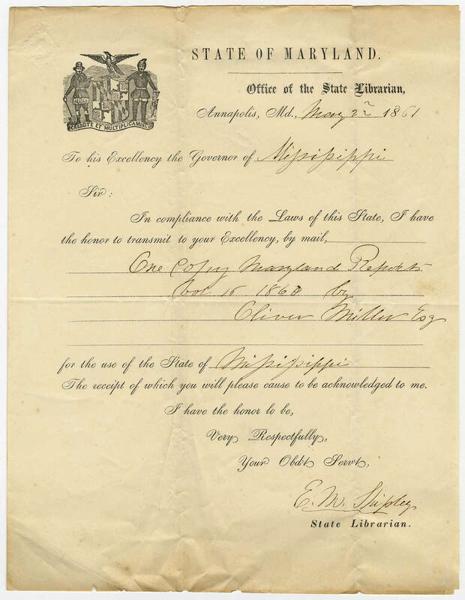 STATE OF MARYLAND.
Office of the State Librarian,
Annapolis, Md., May 2nd 1861
CRESCITE ET MULTIPLICAMINI
To his Excellency the Governor of Mississippi
Sir:
In compliance with the Laws of this State, I have
the honor to transmit to your Excellency, by mail,
One Copy Maryland Reports
Vol 15 1860 by
Oliver Miller Esq
for the use of the State of Mississippi
The receipt of which you will please cause to be acknowledged to me.
I have the honor to be,
Very Respectfully,
Your Obdt Servt,
E. M. Shipley
State Librarian.